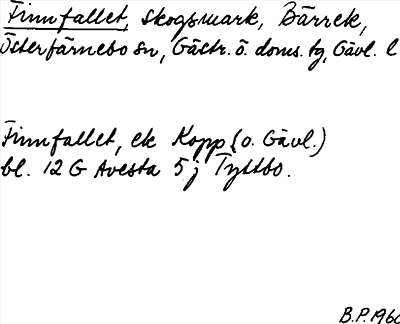 Finnfallet, skogsmark, Bärrek,
Österfärnebo sn, Gästr. ö. doms. tg, Gävl. l
Finnfallet, ek Kopp (o. Gävl.)
bl. 12 G Avesta 5 j Tyttbo.
B.P. 1960